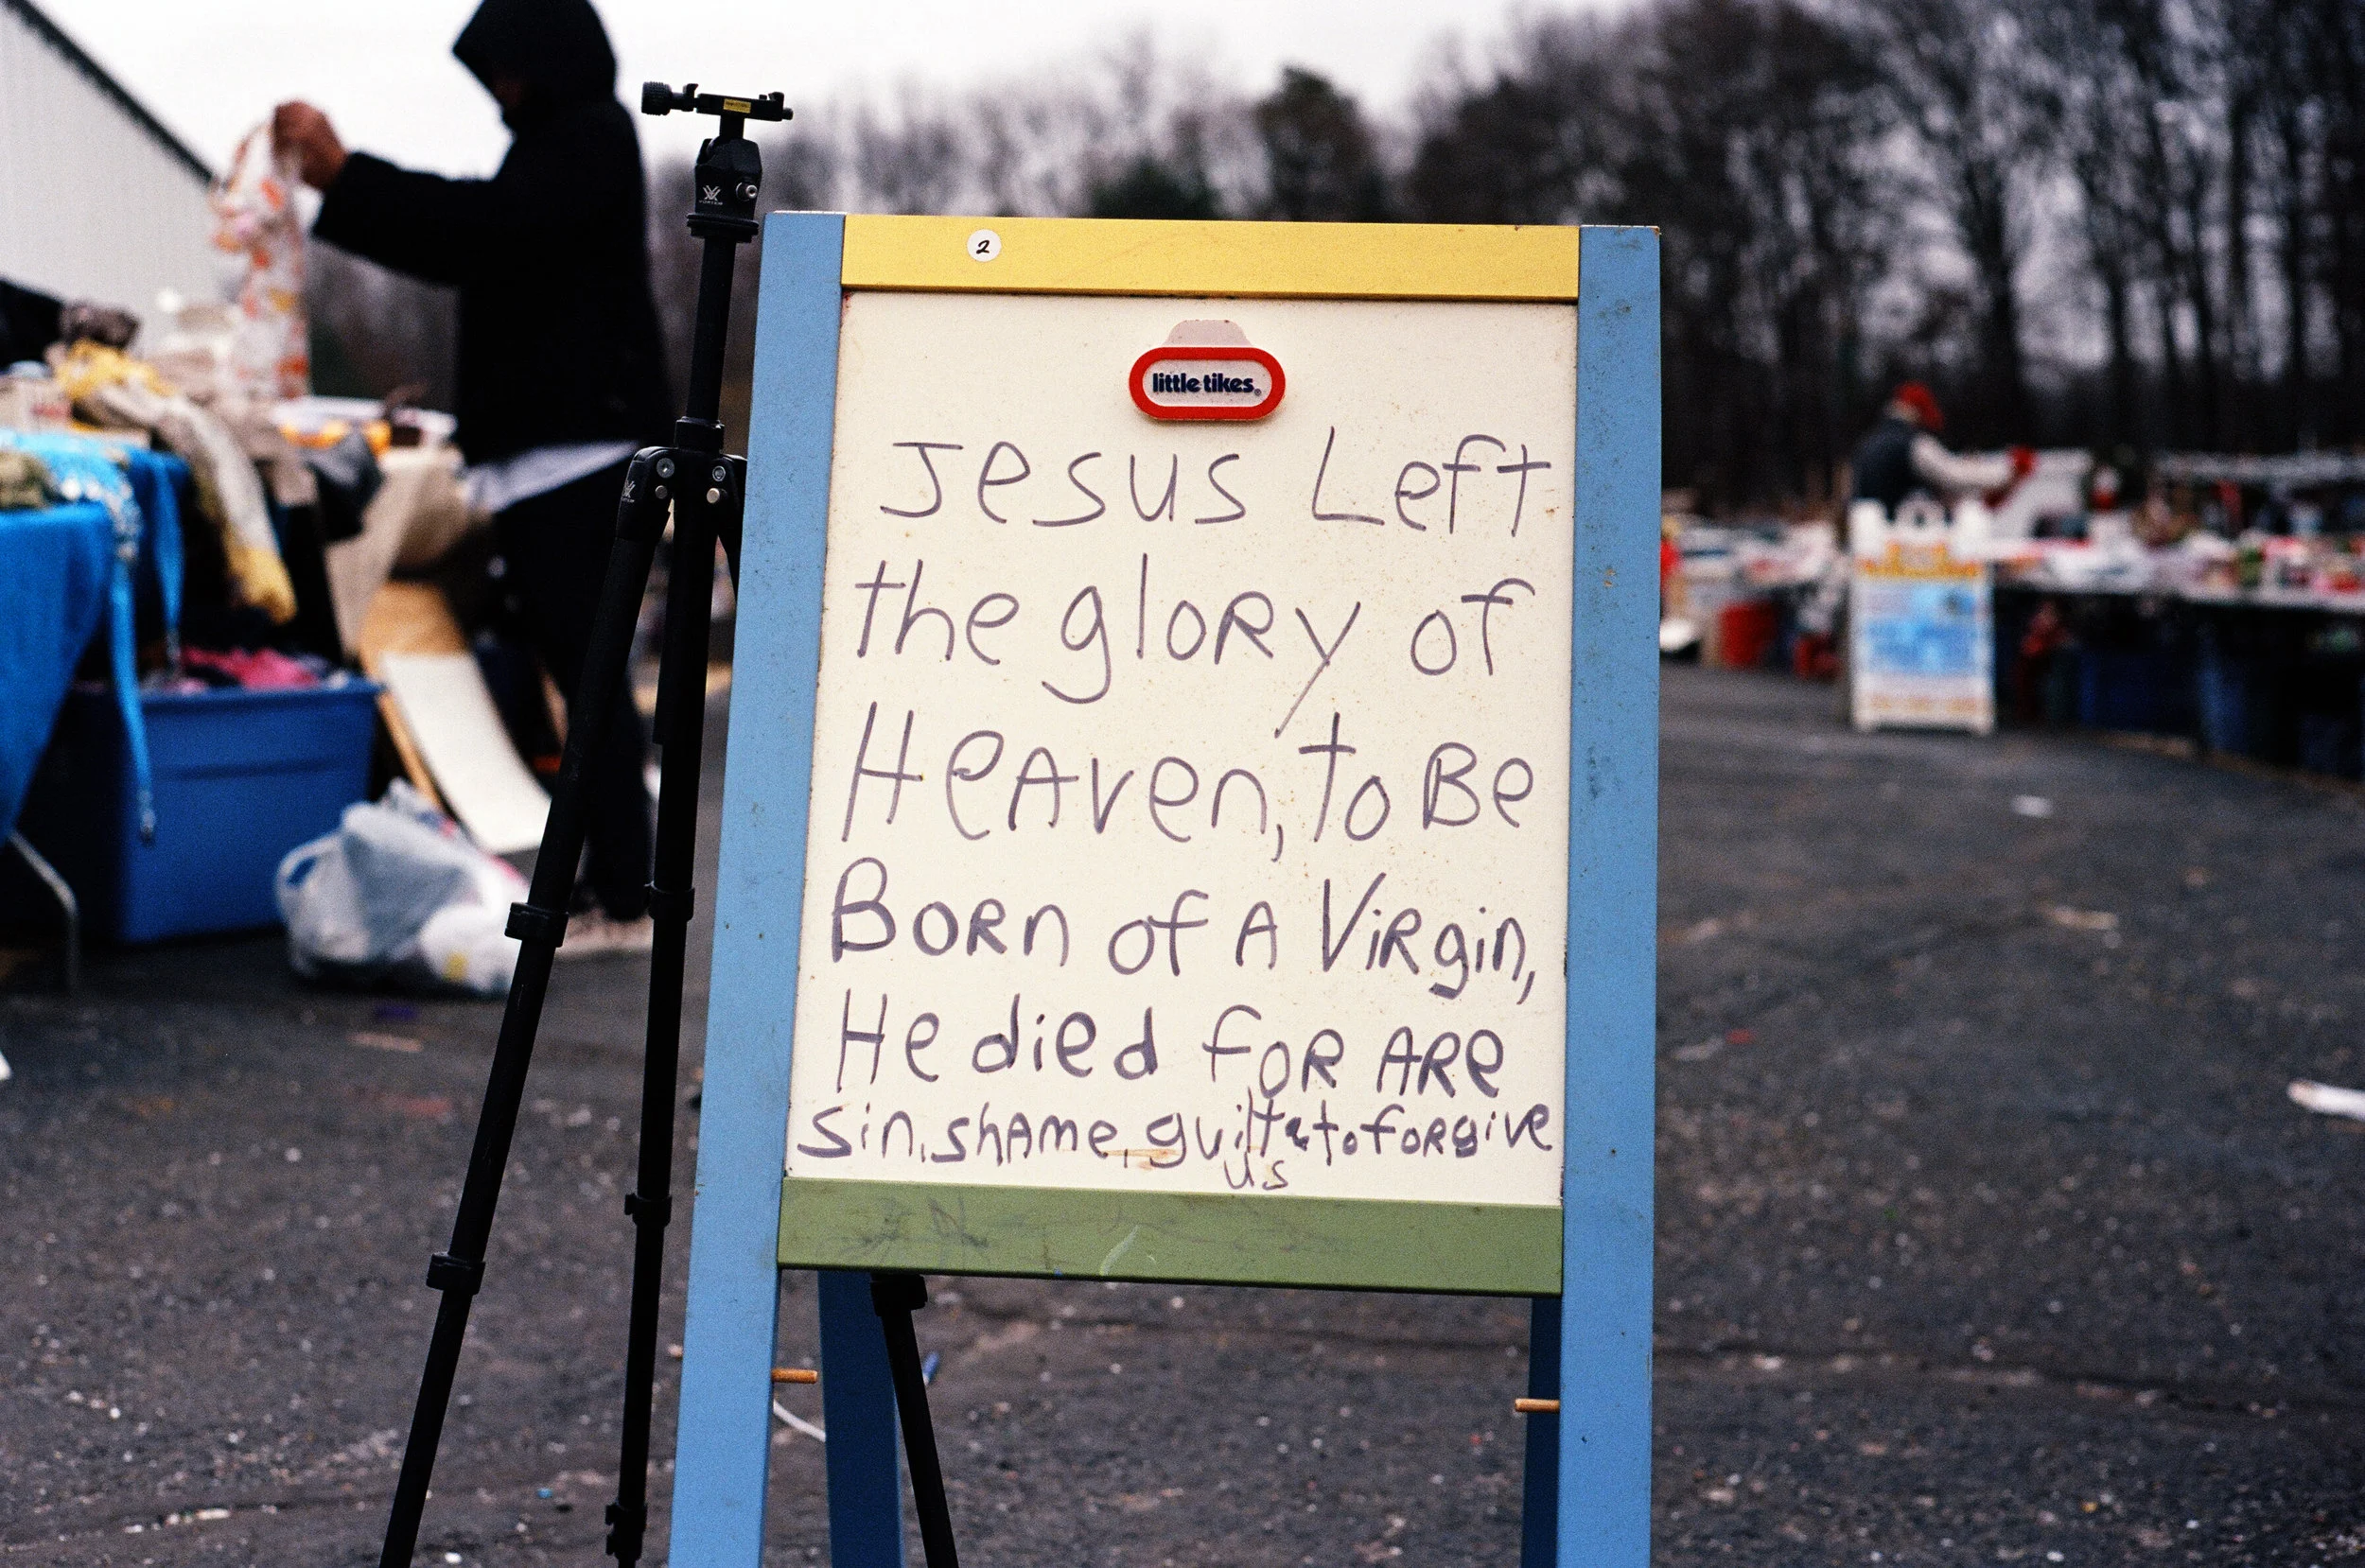 2
little tikes®
Jesus Left
the gloRy of
HeAven, to Be
BoRn of A ViRgin,
He died foR ARe
Sin, shAme, guilt & to foRgive
us